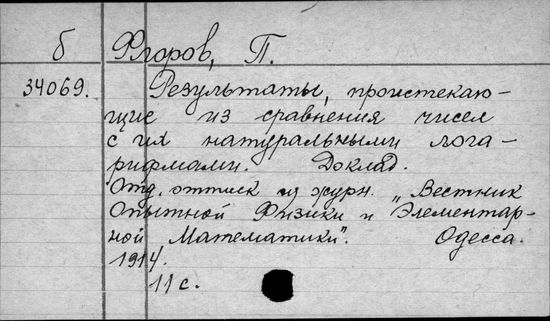 б Флоров, П.
34069. Результаты, проистекаю-
щие из сравнения чисел
с их натуральными лога-
рифмами. Доклад.
Отд. оттиск из журн. „Вестник
Опытной Физики и Элементар-
ной Математики". Одесса.
1914.
11 с.